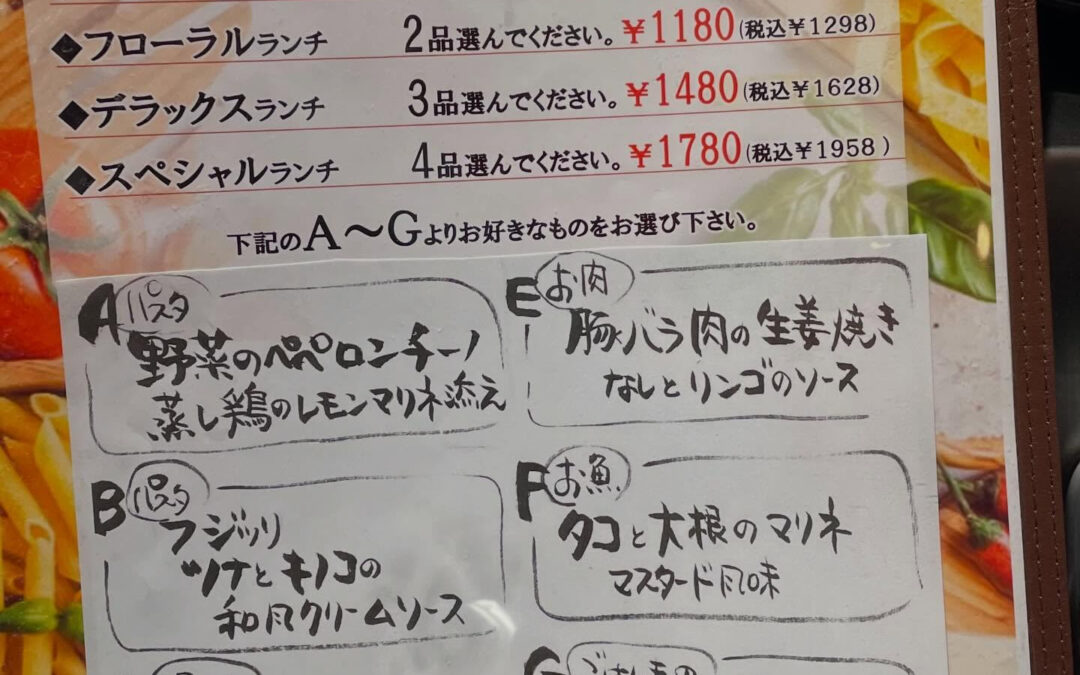 ◆フローラルランチ 2品選んでください。￥1180(税込￥1298)
◆デラックスランチ 3品選んでください。￥1480(税込￥1628)
◆スペシャルランチ 4品選んでください。￥1780(税込￥1958)
下記のA〜Gよりお好きなものをお選び下さい。
A パスタ
野菜のペペロンチーノ
蒸し鶏のレモンマリネ添え
B パスタ
フジッリ
ツナとキノコの
和風クリームソース
E お肉
豚バラ肉の生姜焼き
なしとリンゴのソース
F お魚
タコと大根のマリネ
マスタード風味
G ごはんもの